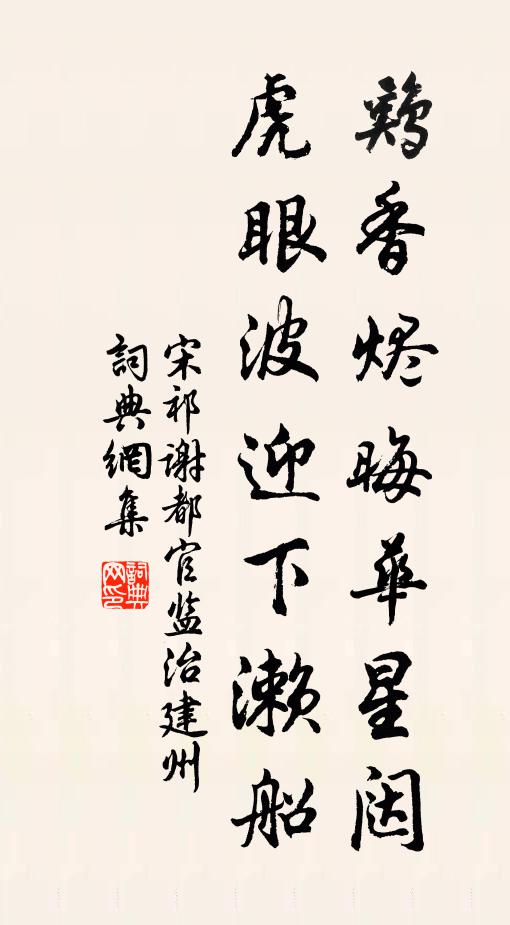 鷄香烬晦華星闼
虎眼波迎下濑船
宋祁谢都官监治建州
詞典網集
詞典网印